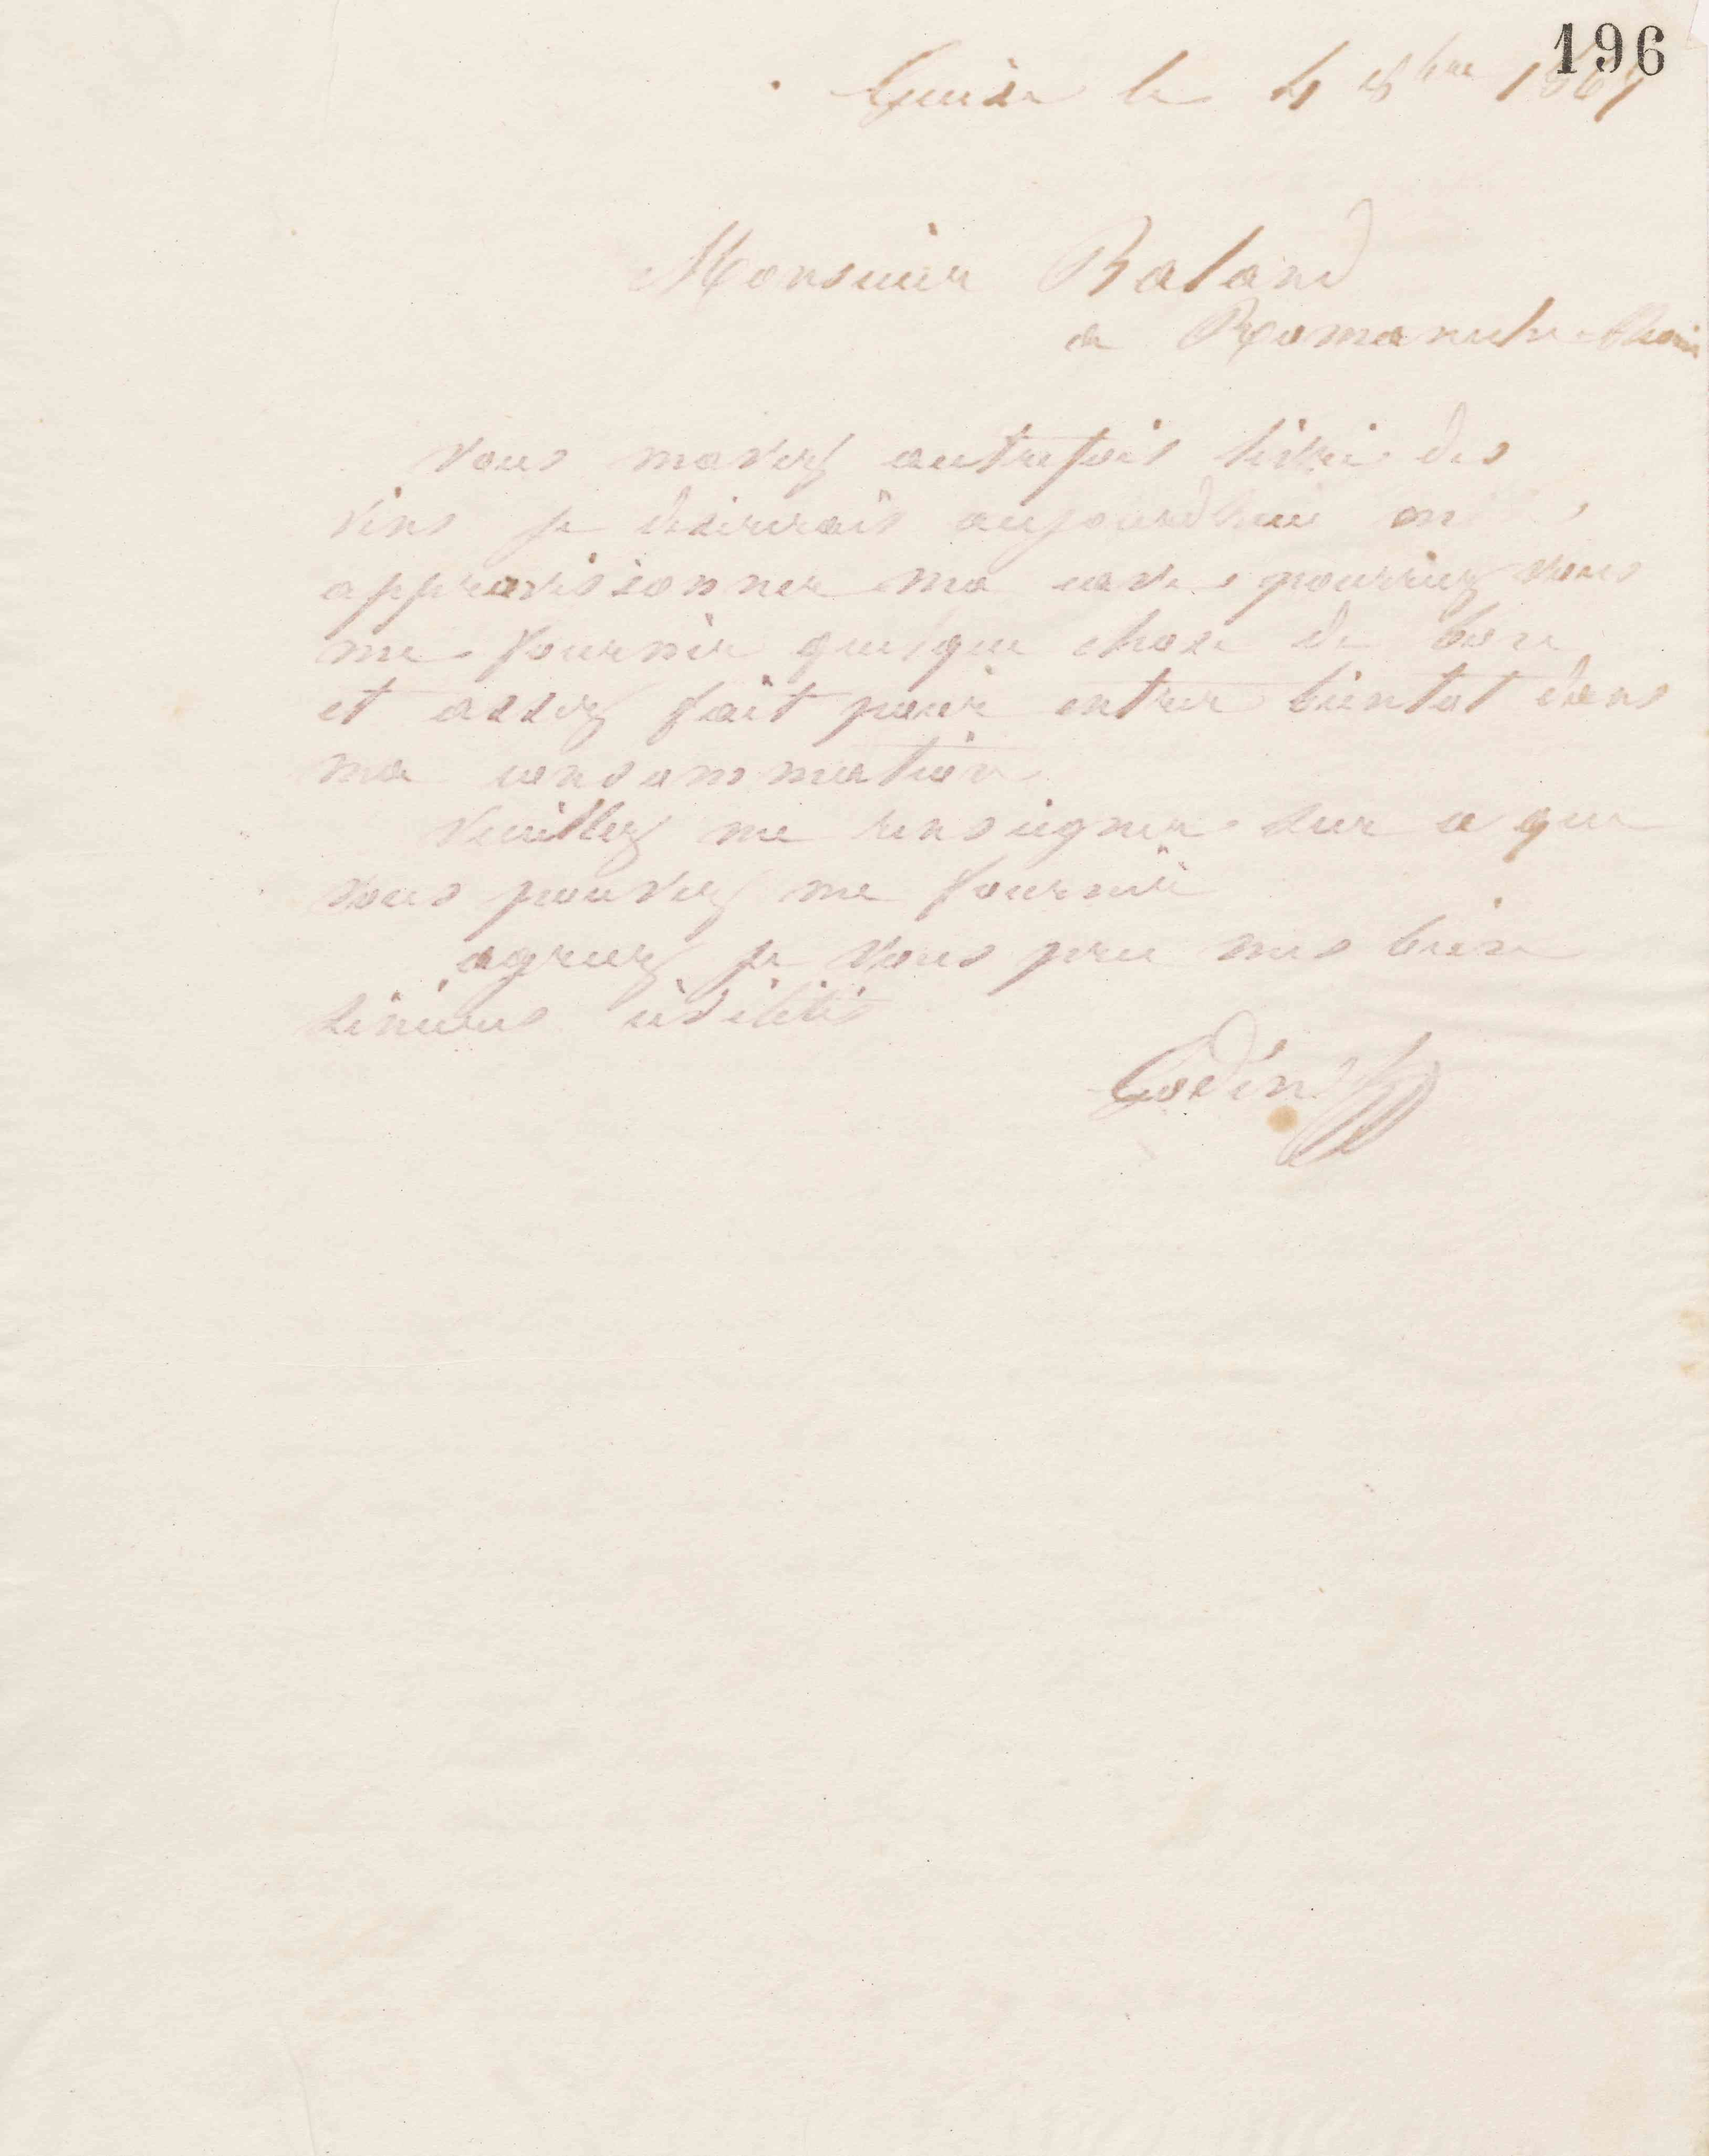 196
Guise le 4 8bre 1867
Monsieur Baland
a Romaneche
vous mavez autrefois livré des
vins je desirerais aujourdhui en
approvisionner ma cave pourriez vous
me fournir quelque chose de bon
et assez fait pour entrer bientot dans
ma consommation
Veuillez me renseigner sur ce que
vous pouvez me fournir
agreez je vous prie mes bien
sinceres civilités
Godin